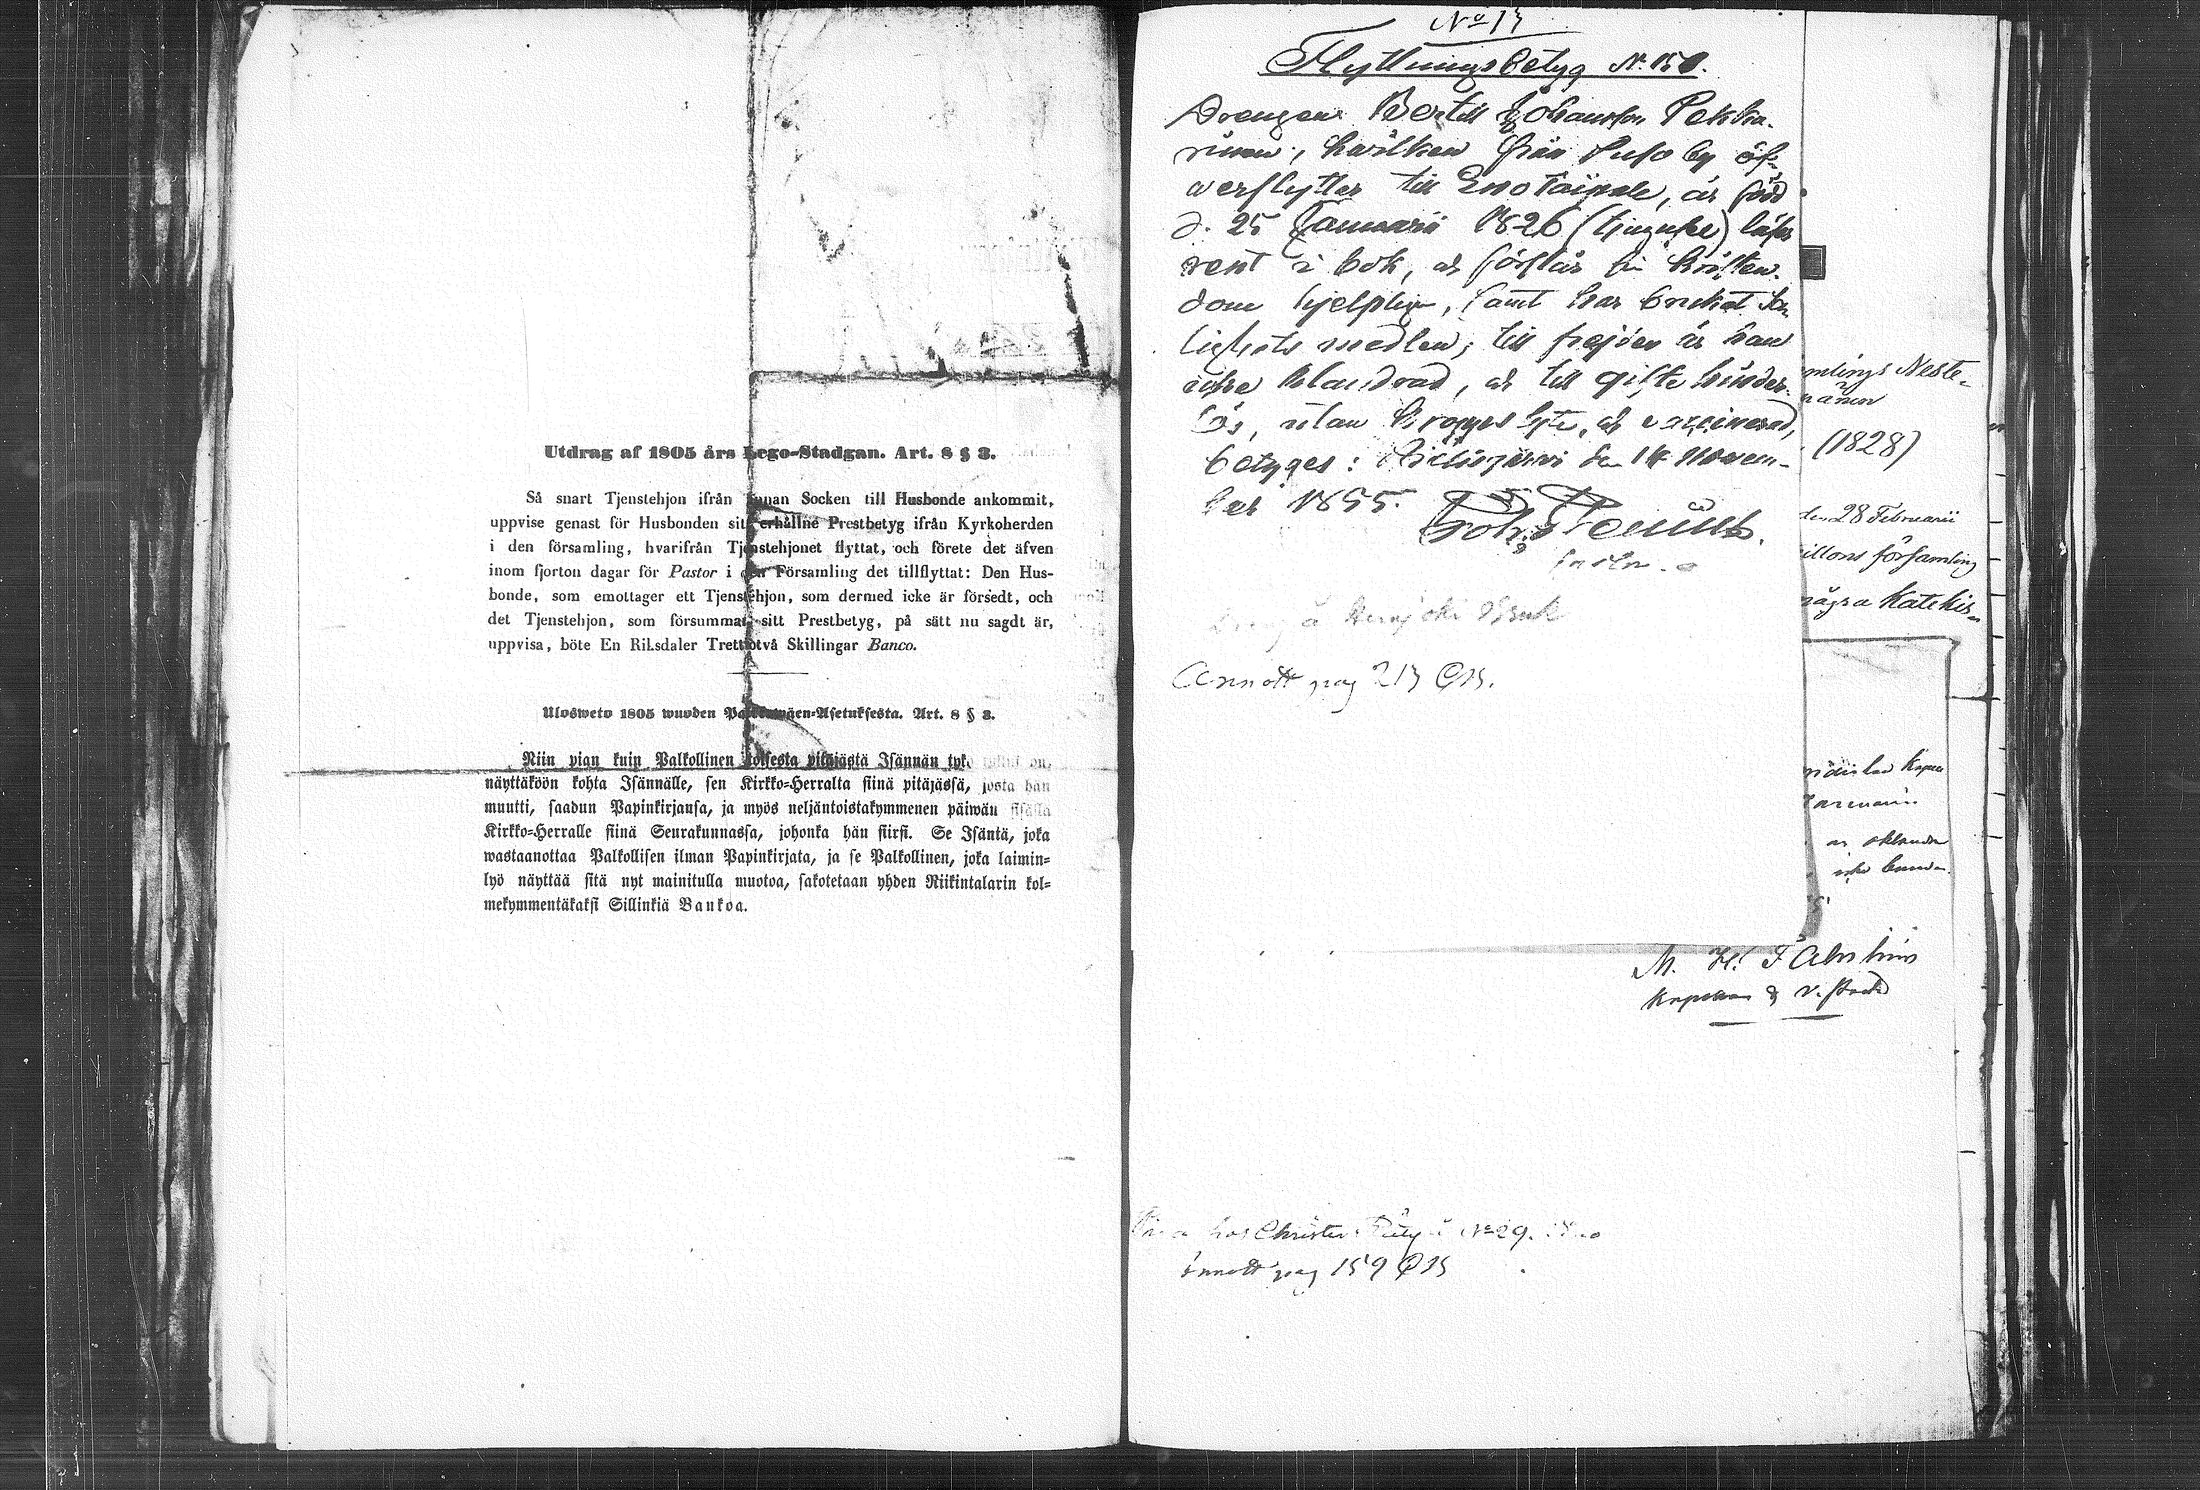 Utdrag af 1805 års Lego-Stadgan. Art. 8 § 3.
Så snart Tjenstehjon ifrån annan Socken till Husbonde ankommit,
uppvise genast för Husbonden sitt erhållne Prestbetyg ifrån Kyrkoherden
i den församling, hvarifrån Tjenstehjonet flyttat, och förete det äfven
inom fjorton dagar för Pastor i den Församling det tillflyttat: Den Hus-
bonde, som emottager ett Tjenstehjon, som dermed icke är försedt, och
det Tjenstehjon, som försummat sitt Prestbetyg, på sätt nu sagdt är,
uppvisa, böte En Riksdaler Trettiotvå Skillingar Banco.
Ulosweto 1805 wuoden Palkkawäen-Asetuksesta. Art. 8 § 3.
Niin pian kuin Palkollinen toisesta pitäjästä Isännän tykö tullut on,
näyttäköön kohta Isännälle, sen Kirkko-Herralta siinä pitäjässä, josta hän
muutti, saadun Papinkirjansa, ja myös neljäntoistakymmenen päiwän sisällä
Kirkko-Herralle siinä Seurakunnassa, johonka hän siirsi. Se Isäntä, joka
wastaanottaa Palkollisen ilman Papinkirjata, ja se Palkollinen, joka laimin-
lyö näyttää sitä nyt mainitulla muotoa, sakotetaan yhden Riikintalarin kol-
mekymmentäkaksi Sillinkiä Bankoa.
No 13
Flyttningsbetyg N. 150.
Drengen Bertill Johansson Pekka-
rinen, hvilken från by öf-
werflyttar till Enotaipale, är född
d. 25 Januarii 1826 (tjugusex) läser
rent i bok, och förstår sin kristen-
dom hjelpligen, samt har brukat Sa-
lighets medlen; till frejden är han
icke klandrad, och till gifte hinder-
lös, utan kropps lyte, och vaccinerad,
betygas: den 14 Novem-
ber 1855.
Annott pag 213 CB.
mlings Neste-
(1828)
den 28 Februarii
församling
några Katekis-
M. H.
Kapellan &
hos Christer No 29.
Annott pag 159 CB